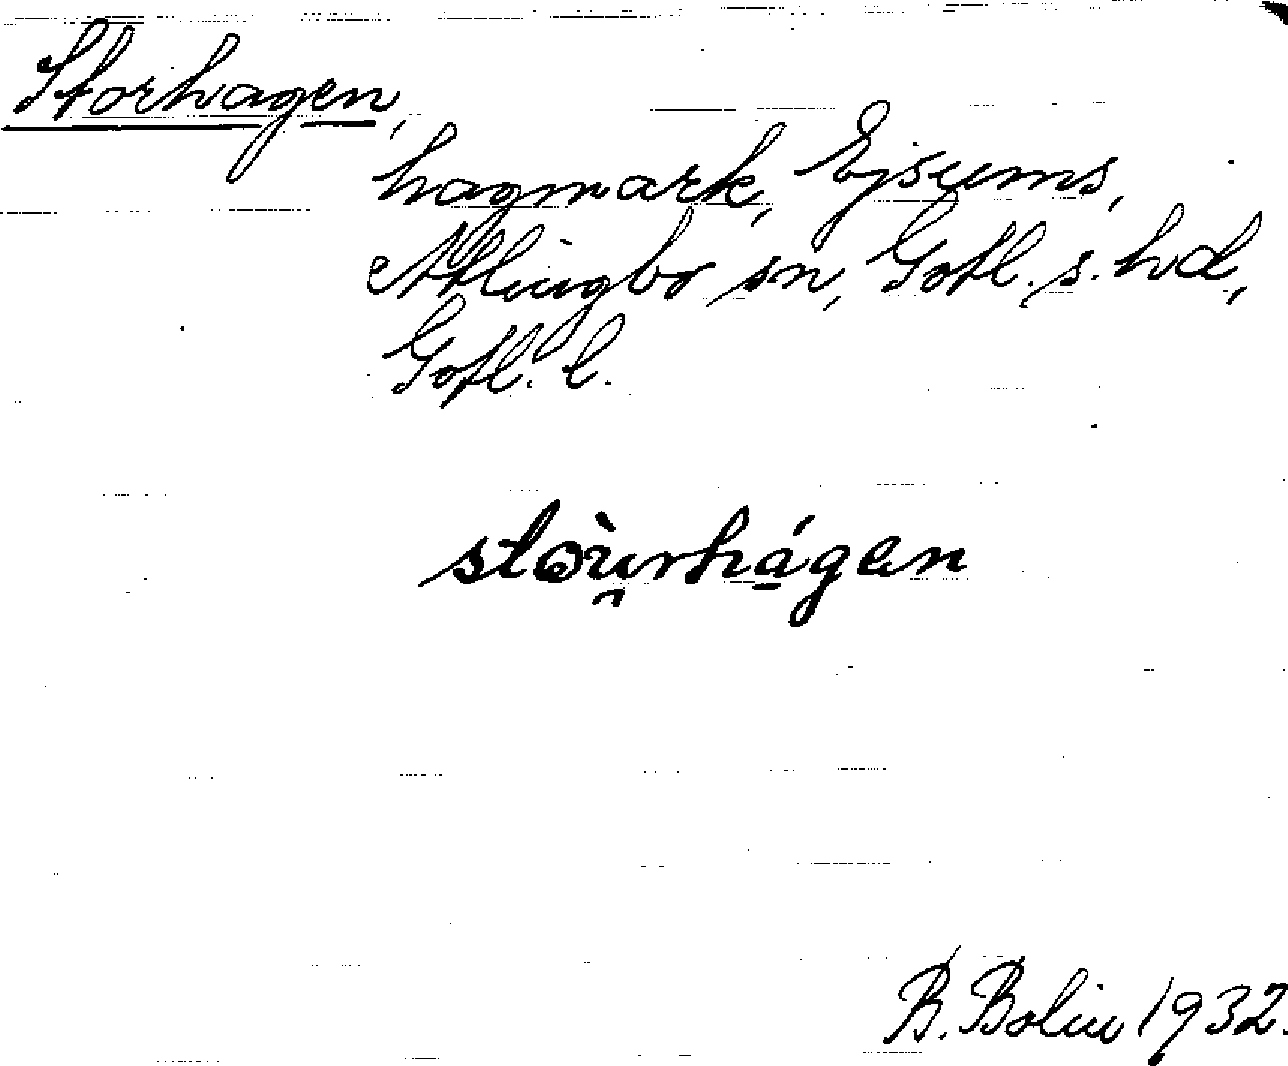 Storhagen,
hagmark, Ejsums,
Atlingbo sn, Gotl. s. hd,
Gotl. l.
stoùrhágen
B. Bolin 1932.